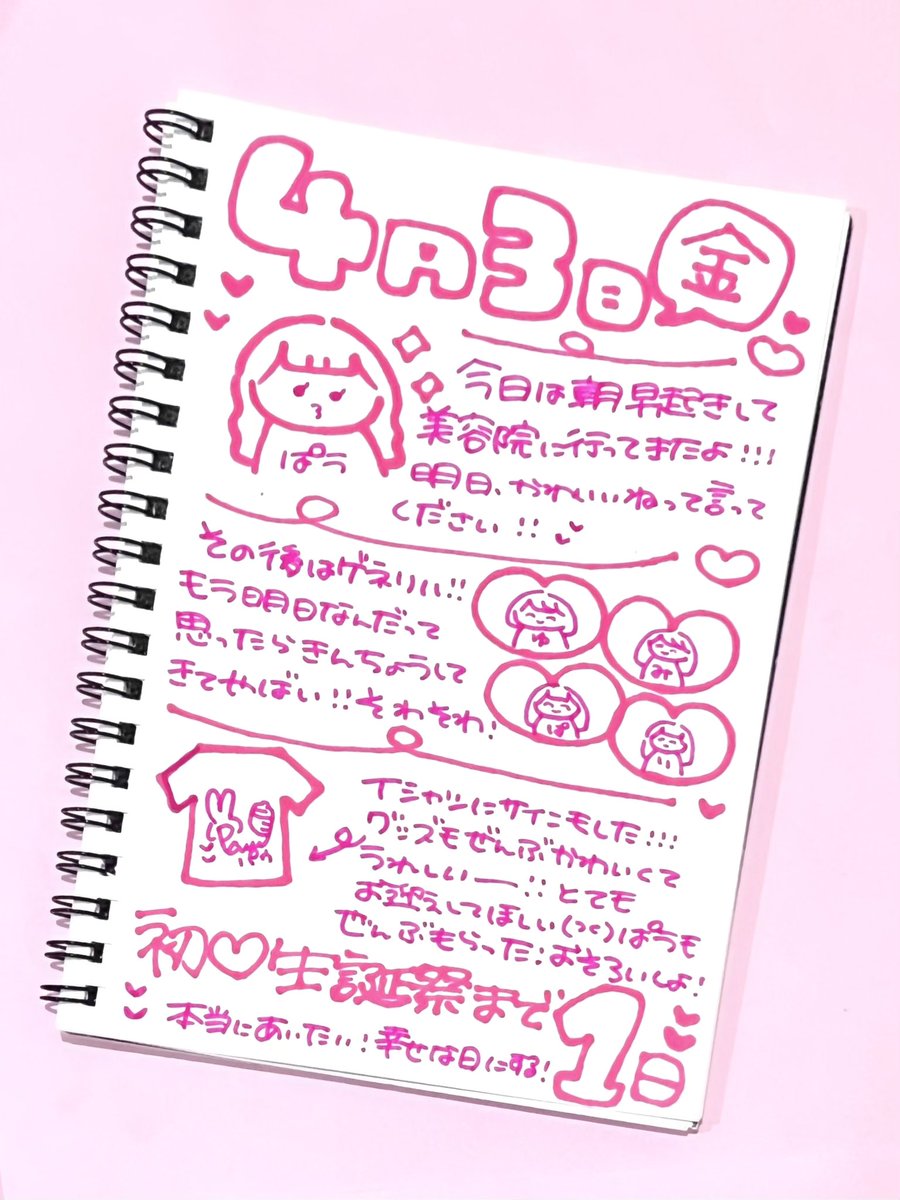 4月3日 金
ぱう
今日は朝早起きして
美容院に行ってきたよ!!!
明日、かわいいねって言って
ください!!
その後はゲネリハ!!
もう明日なんだって
思ったらきんちょうして
きてやばい!!そわそわ!
ゆ
み
ぱ
い
Tシャツにサインもした!!!
グッズもぜんぶかわいくて
うれしいー!!とても
お迎えしてほしい(つc)ぱうも
ぜんぶもらった!おそろいしよ!
初♡生誕祭まで1日
本当にあいたい!幸せな日にする!